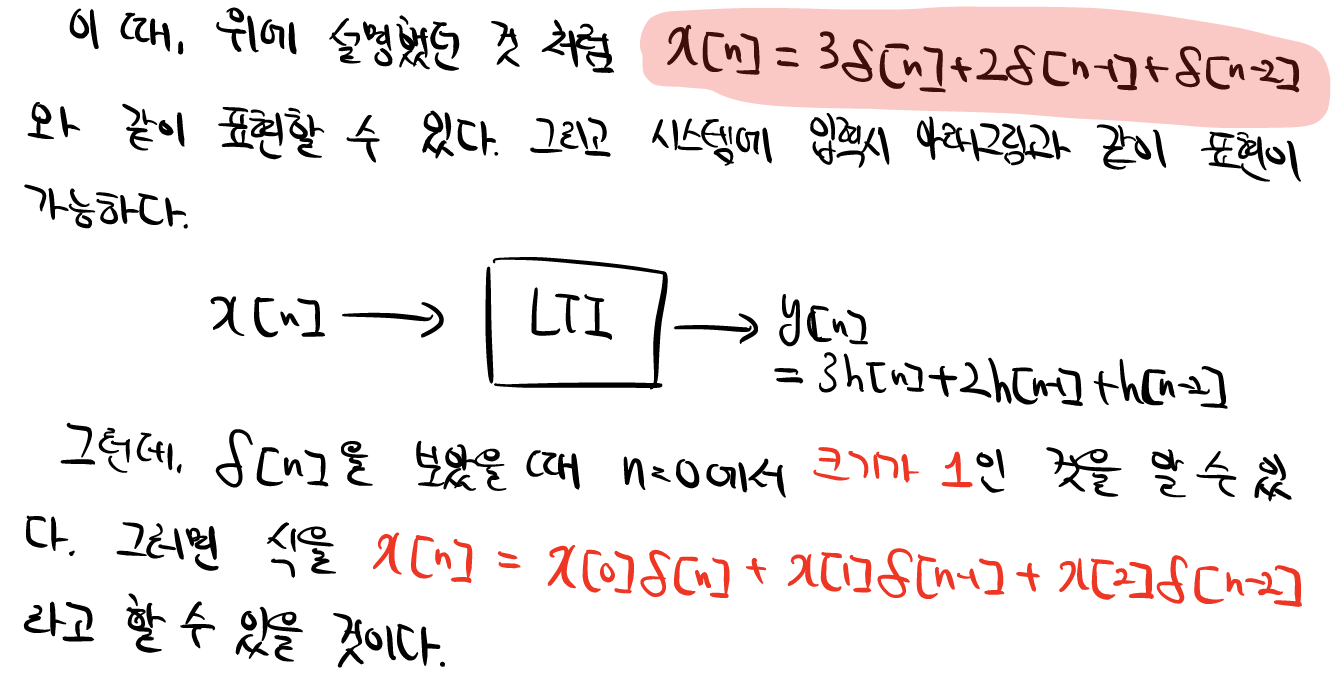 이 때, 위에 설명했던 것 처럼 x[n] = 3δ[n]+2δ[n-1]+δ[n-2]
와 같이 표현할 수 있다. 그리고 시스템에 입력시 아래그림과 같이 표현이
가능하다.
x[n] → LTI → y[n]
= 3h[n]+2h[n-1]+h[n-2]
그런데, δ[n]을 보았을 때 n=0에서 크기가 1인 것을 알 수 있
다. 그러면 식을 x[n] = x[0]δ[n] + x[1]δ[n-1] + x[2]δ[n-2]
라고 할 수 있을 것이다.